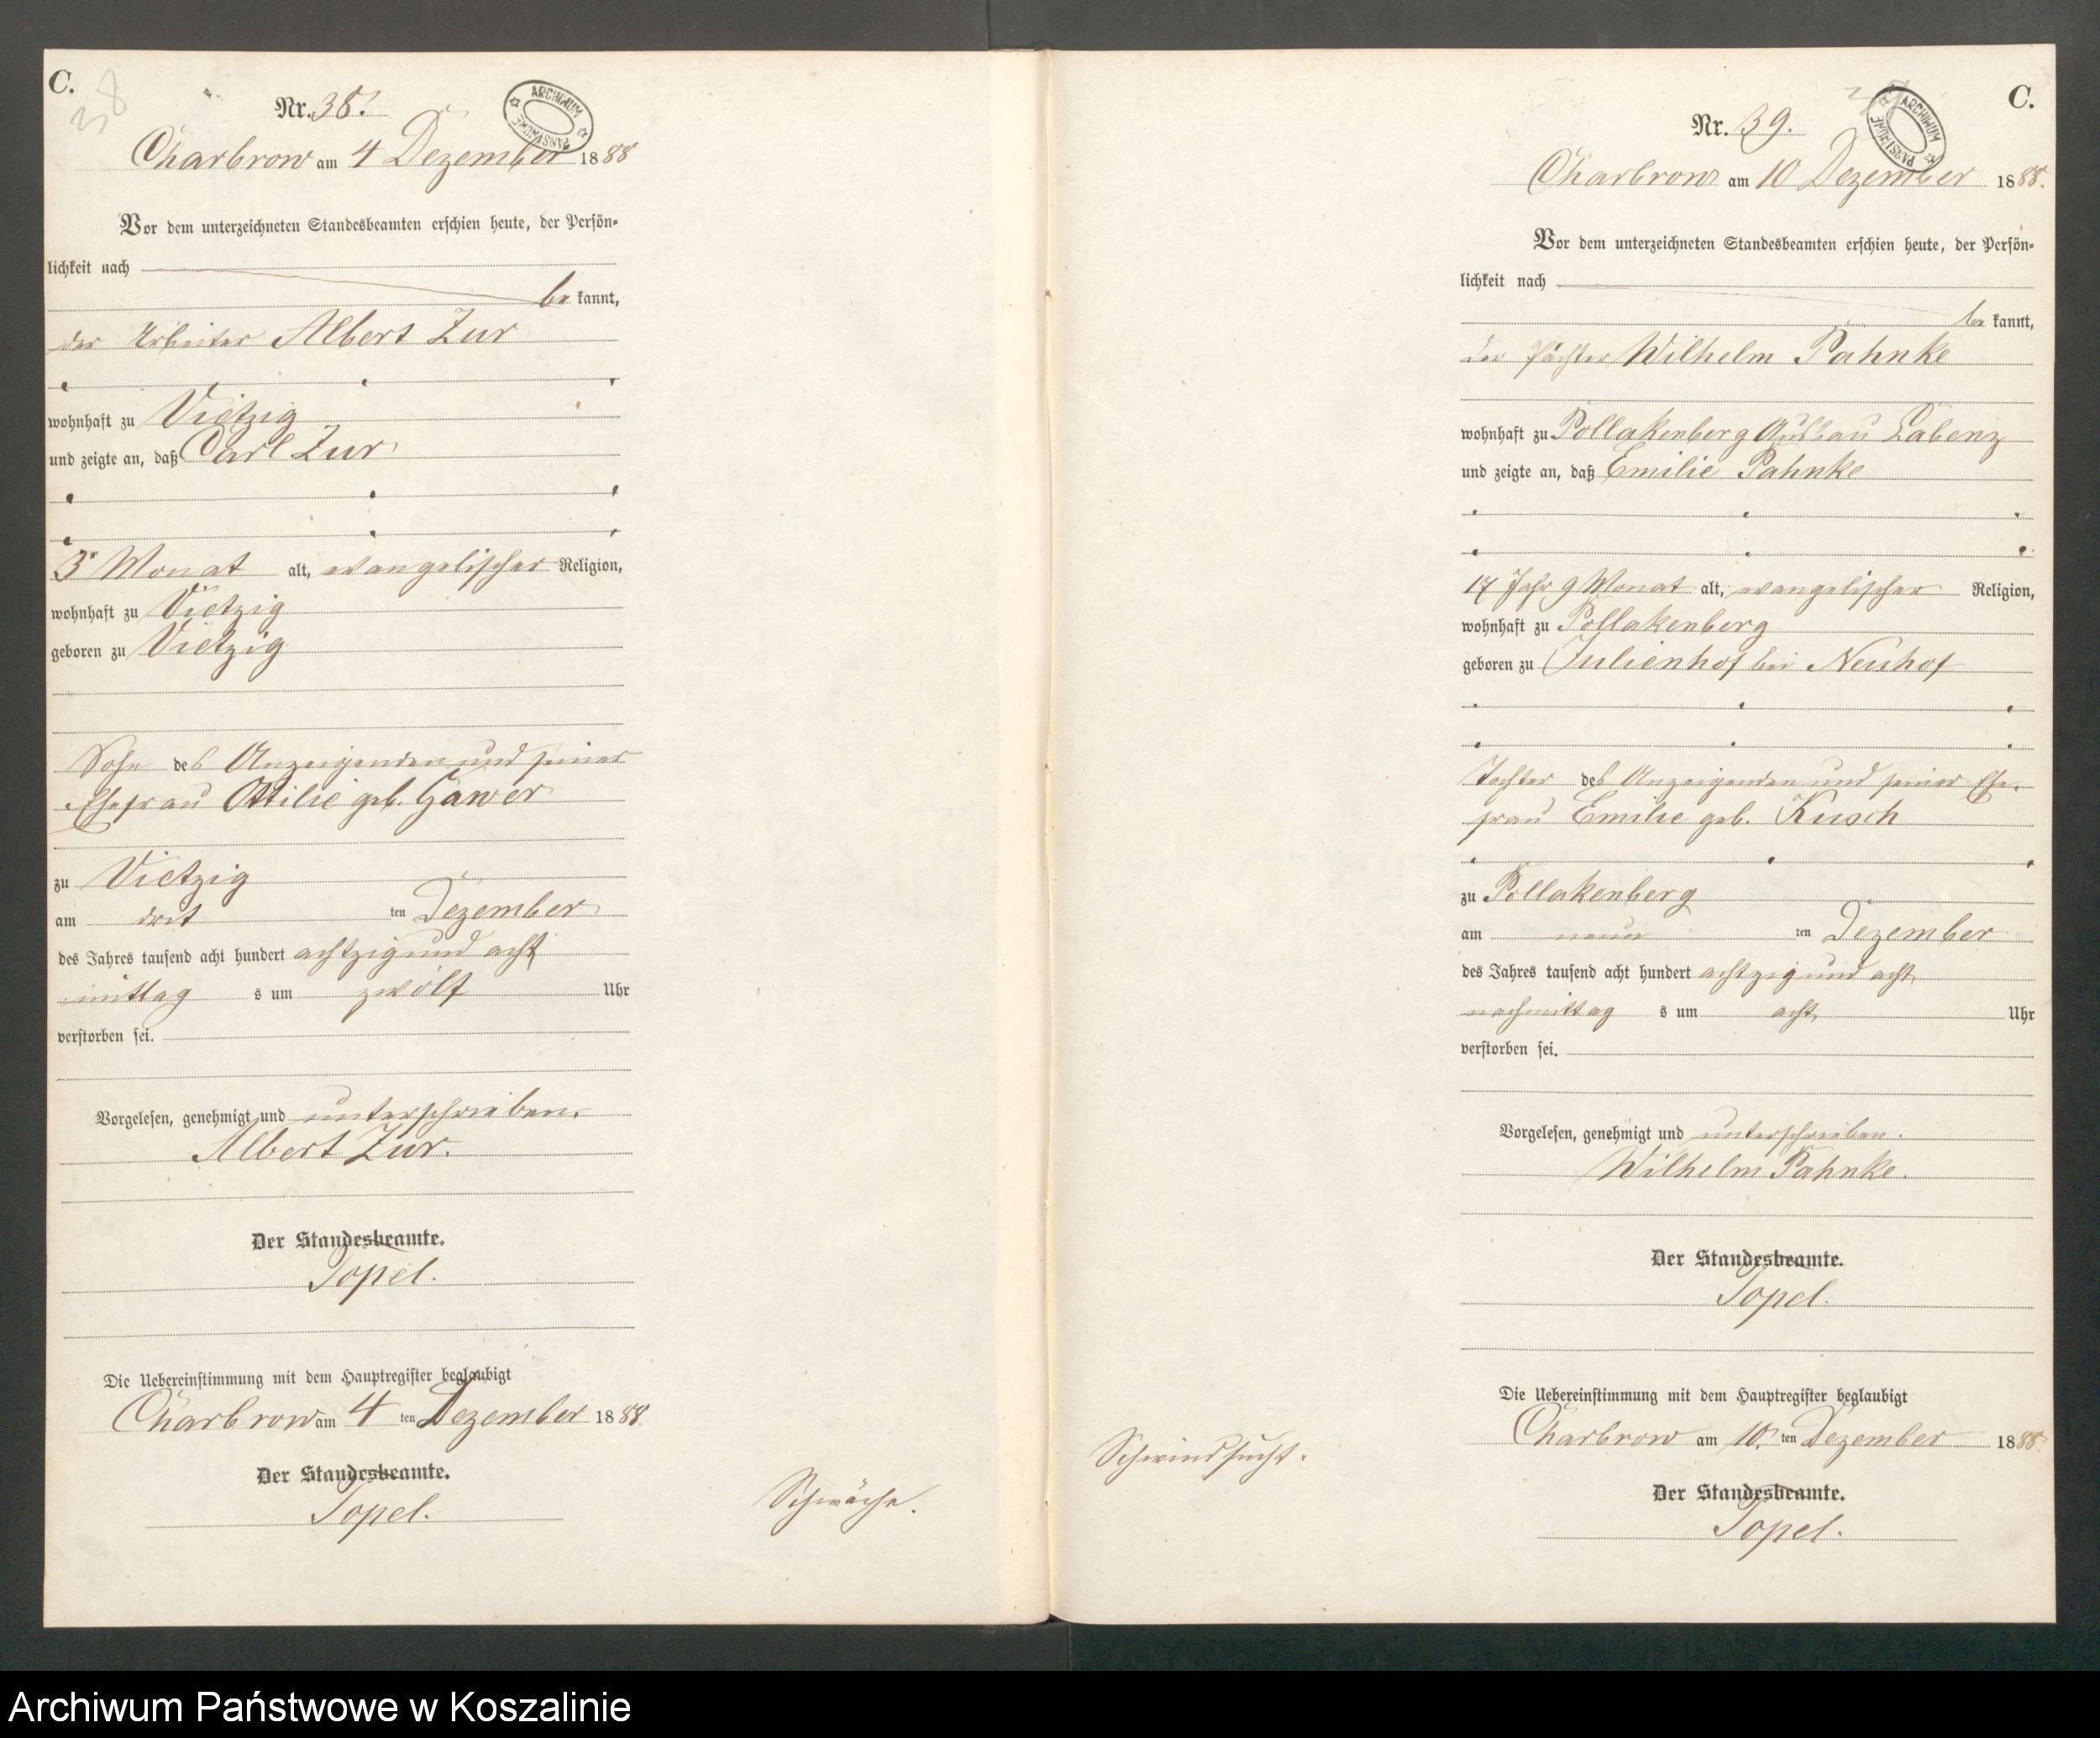 C.
38
Nr. 38.
ARCHIWUM PAŃSTWOWE
Charbrow am 4 Dezember 1888
Vor dem unterzeichneten Standesbeamten erschien heute, der Persön=
lichkeit nach
be kannt,
der Arbeiter Albert Zur
wohnhaft zu Vietzig
und zeigte an, daß Carl Zur
3 Monat alt, evangelischer Religion,
wohnhaft zu Vietzig
geboren zu Vietzig
Sohn des Anzeigenden und seiner
Ehefrau Ottilie geb. Gawer
zu Vietzig
am drit ten Dezember
des Jahres tausend acht hundert achtzig und acht
mittag s um zwölf Uhr
verstorben sei.
Vorgelesen, genehmigt und unterschrieben.
Albert Zur.
Der Standesbeamte.
Topel.
Die Uebereinstimmung mit dem Hauptregister beglaubigt
Charbrow am 4 ten Dezember 1888
Der Standesbeamte.
Topel.
Schwäche.
C.
Nr. 39.
ARCHIWUM PAŃSTWOWE
Charbrow am 10 Dezember 1888.
Vor dem unterzeichneten Standesbeamten erschien heute, der Persön=
lichkeit nach
be kannt,
der Pächter Wilhelm Pahnke
wohnhaft zu Pollakenberg Ausbau Labenz
und zeigte an, daß Emilie Pahnke
17 Jahr 9 Monat alt, evangelischer Religion,
wohnhaft zu Pollakenberg
geboren zu Julienhof bei Neuhof
Tochter des Anzeigenden und seiner Ehe-
frau Emilie geb. Kusch
zu Pollakenberg
am neun ten Dezember
des Jahres tausend acht hundert achtzig und acht
nachmittag s um acht Uhr
verstorben sei.
Vorgelesen, genehmigt und unterschrieben.
Wilhelm Pahnke.
Der Standesbeamte.
Topel.
Die Uebereinstimmung mit dem Hauptregister beglaubigt
Charbrow am 10. ten Dezember 1888.
Der Standesbeamte.
Topel.
Schwindsucht.
Archiwum Państwowe w Koszalinie